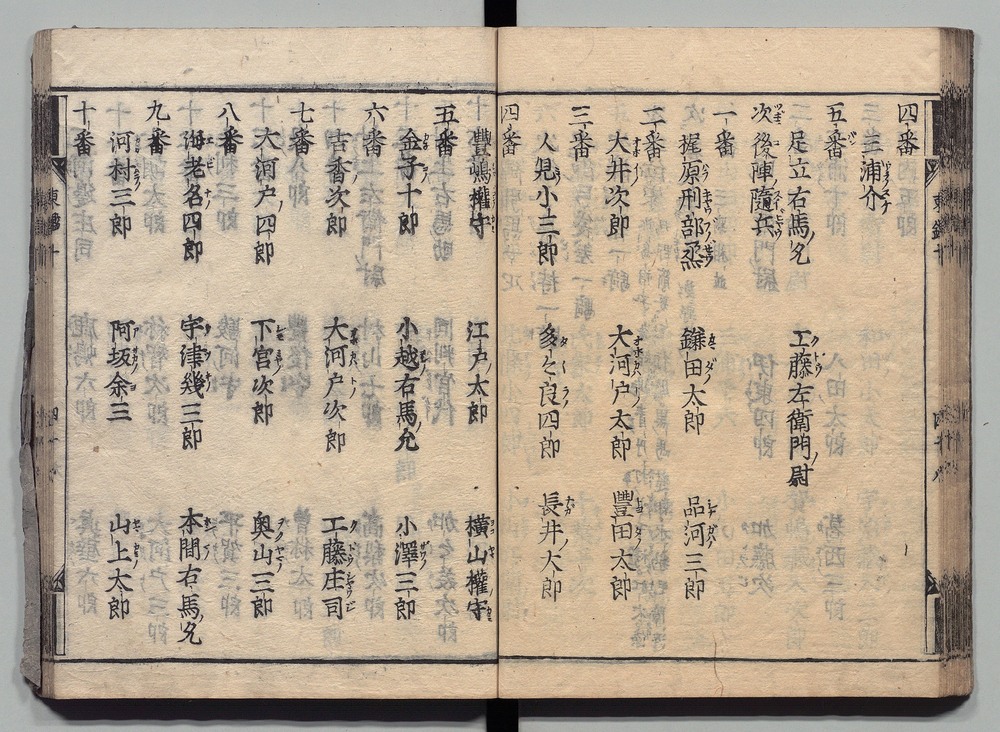 四番
三浦介
五番
足立右馬允 工藤左衛門尉
次後陣隨兵
一番
梶原刑部烝 鎌田太郎 品河三郎
二番
大井次郎 大河戸太郎 豐田太郎
三番
人見小三郎 多々良四郎 長井太郎
四番
豐嶋權守 江戸太郎 横山權守
五番
金子十郎 小越右馬允 小澤三郎
六番
古香次郎 大河戸次郎 工藤庄司
七番
大河戸四郎 下宮次郎 奥山三郎
八番
海老名四郎 宇津幾三郎 本間右馬允
九番
河村三郎 阿坂余三 山上太郎
十番